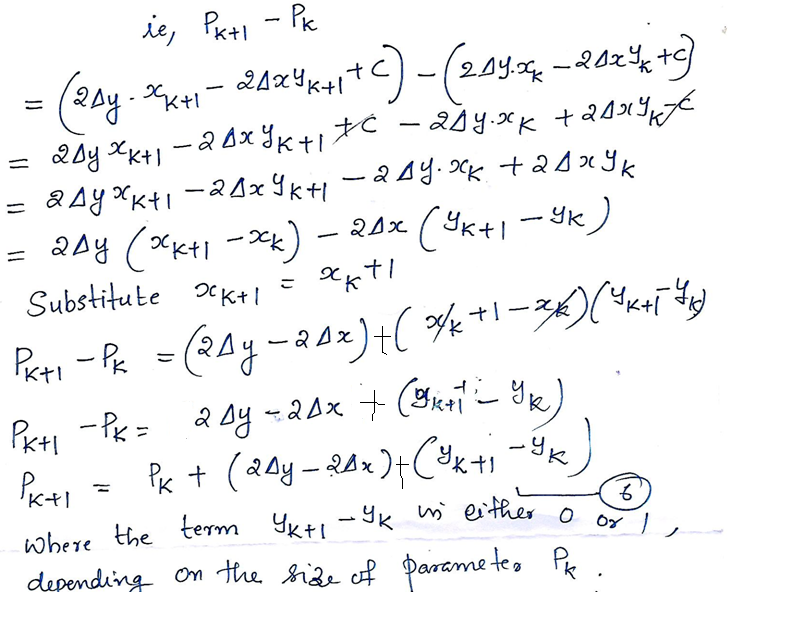 ie, P_{k+1} - P_k
= (2Δy · x_{k+1} - 2Δx y_{k+1} + c) - (2Δy·x_k - 2Δx y_k + c)
= 2Δy x_{k+1} - 2Δx y_{k+1} + c - 2Δy·x_k + 2Δx y_k - c
= 2Δy x_{k+1} - 2Δx y_{k+1} - 2Δy·x_k + 2Δx y_k
= 2Δy (x_{k+1} - x_k) - 2Δx (y_{k+1} - y_k)
Substitute x_{k+1} = x_k + 1
P_{k+1} - P_k = (2Δy - 2Δx) + (x_k + 1 - x_k)(y_{k+1} - y_k)
P_{k+1} - P_k = 2Δy - 2Δx + (y_{k+1} - y_k)
P_{k+1} = P_k + (2Δy - 2Δx) + (y_{k+1} - y_k)
6
where the term y_{k+1} - y_k is either 0 or 1,
depending on the size of parameter P_k.